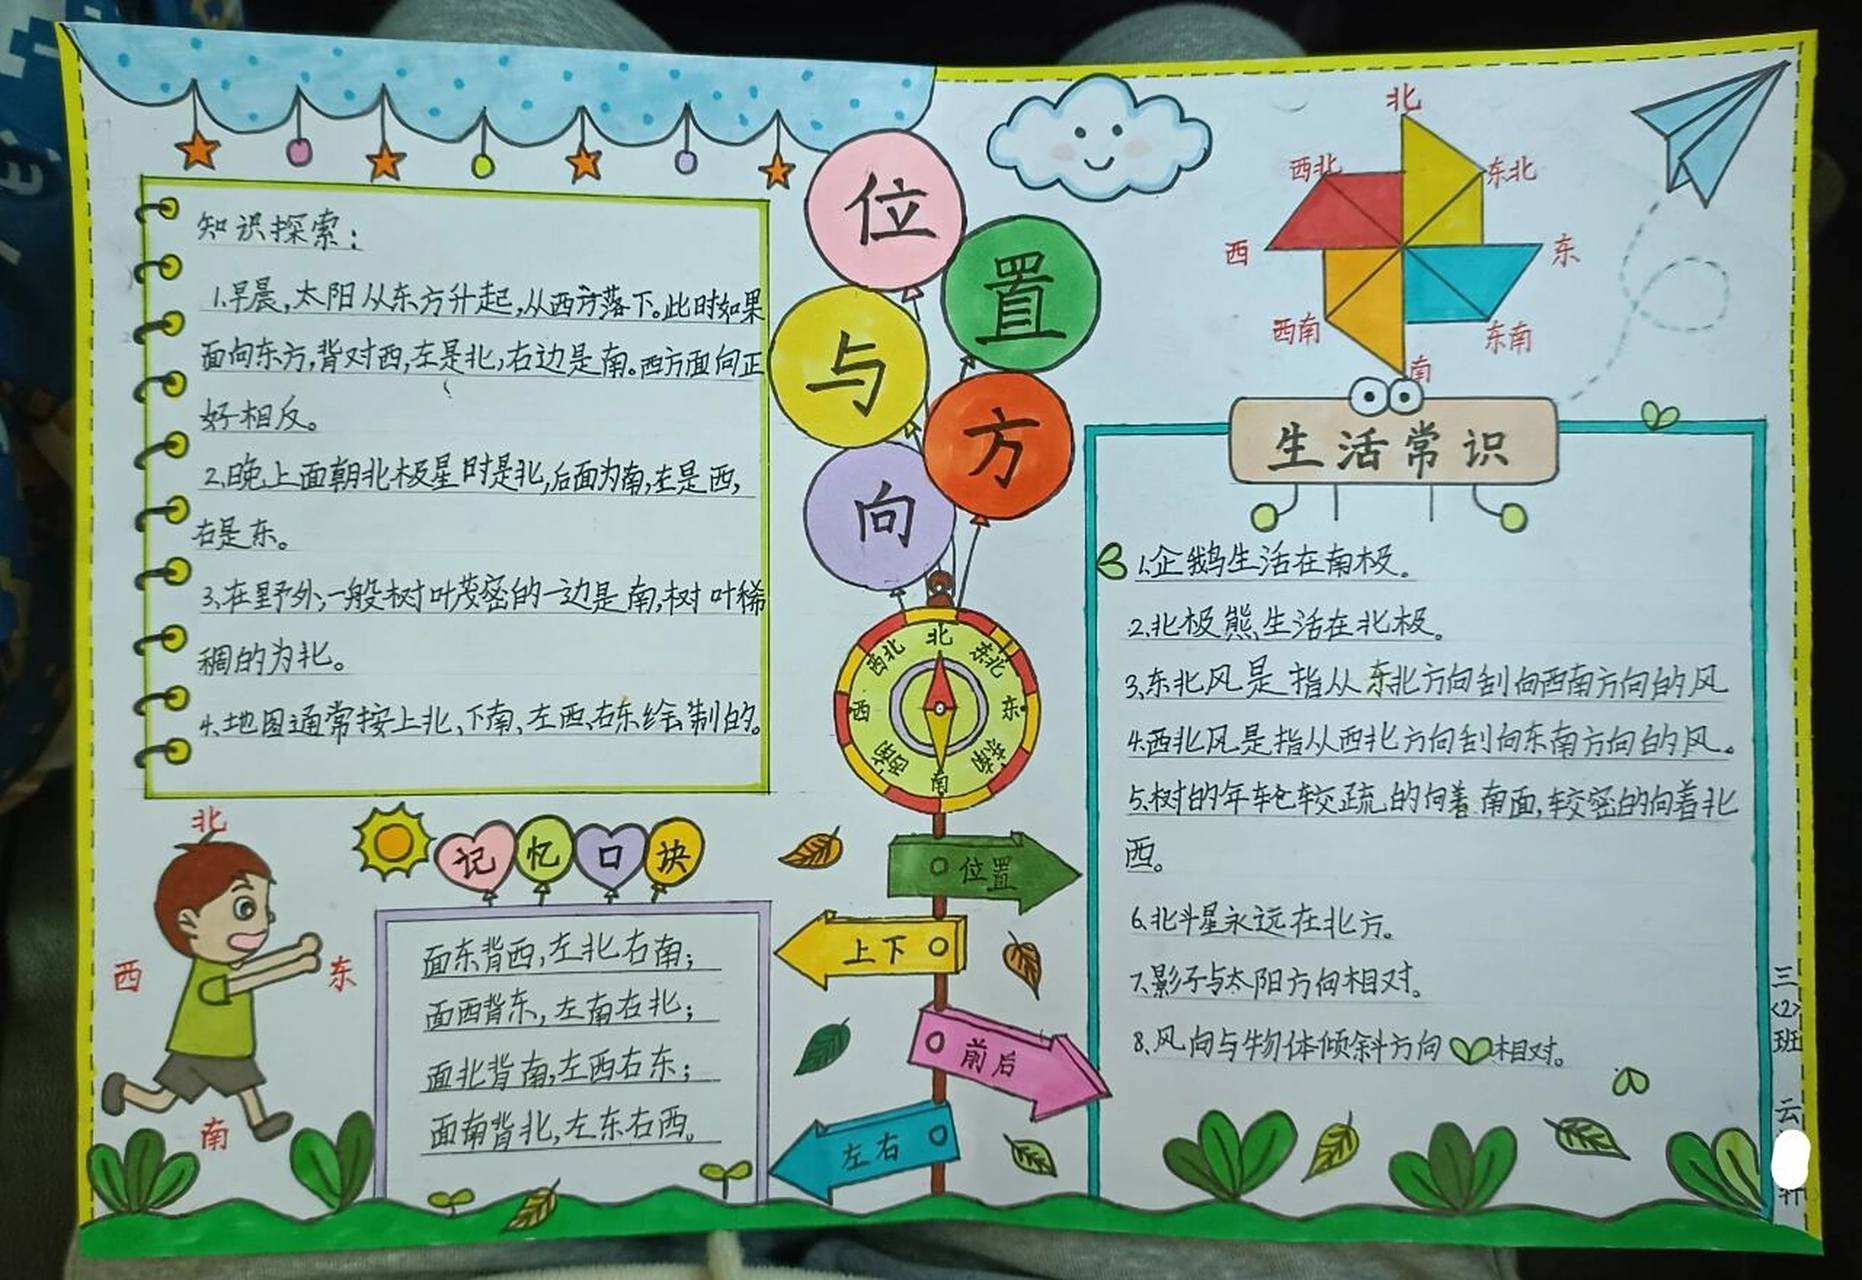 位置与方向
知识探索：
1、早晨，太阳从东方升起，从西方落下。此时如果
面向东方，背对西，左是北，右边是南。西方面向正
好相反。
2、晚上面朝北极星时是北，后面为南，左是西，
右是东。
3、在野外，一般树叶茂密的一边是南，树叶稀
稠的为北。
4、地图通常按上北、下南、左西、右东绘制的。
北
西
东
南
记忆口诀
面东背西，左北右南；
面西背东，左南右北；
面北背南，左西右东；
面南背北，左东右西。
北
西北
东北
西
东
西南
东南
南
位置
上下
前后
左右
北
西北
东北
西
东
西南
东南
南
生活常识
1、企鹅生活在南极。
2、北极熊生活在北极。
3、东北风是指从东北方向刮向西南方向的风
4、西北风是指从西北方向刮向东南方向的风。
5、树的年轮较疏的向着南面，较密的向着北
西。
6、北斗星永远在北方。
7、影子与太阳方向相对。
8、风向与物体倾斜方向相对。
三
<2>
班
云
轩